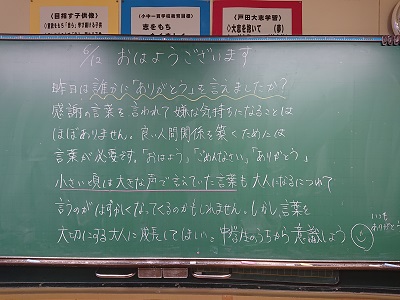 〈目指す子供像〉
〈小中一貫学園教育目標〉
志をもち
〈戸田大志学習〉
◇大志を抱いて (夢)
6/12 おはようございます
昨日は誰かに「ありがとう」を言えましたか?
感謝の言葉を言われて嫌な気持ちになることは
ほぼありません。良い人間関係を築くためには
言葉が必要です。「おはよう」「ごめんなさい」「ありがとう」
小さい頃は大きな声で言えていた言葉も大人になるにつれて
言うのがはずかしくなってくるのかもしれません。しかし、言葉を
大切にする大人に成長してほしい。中学生のうちから意識しよう
いつも
ありがとう